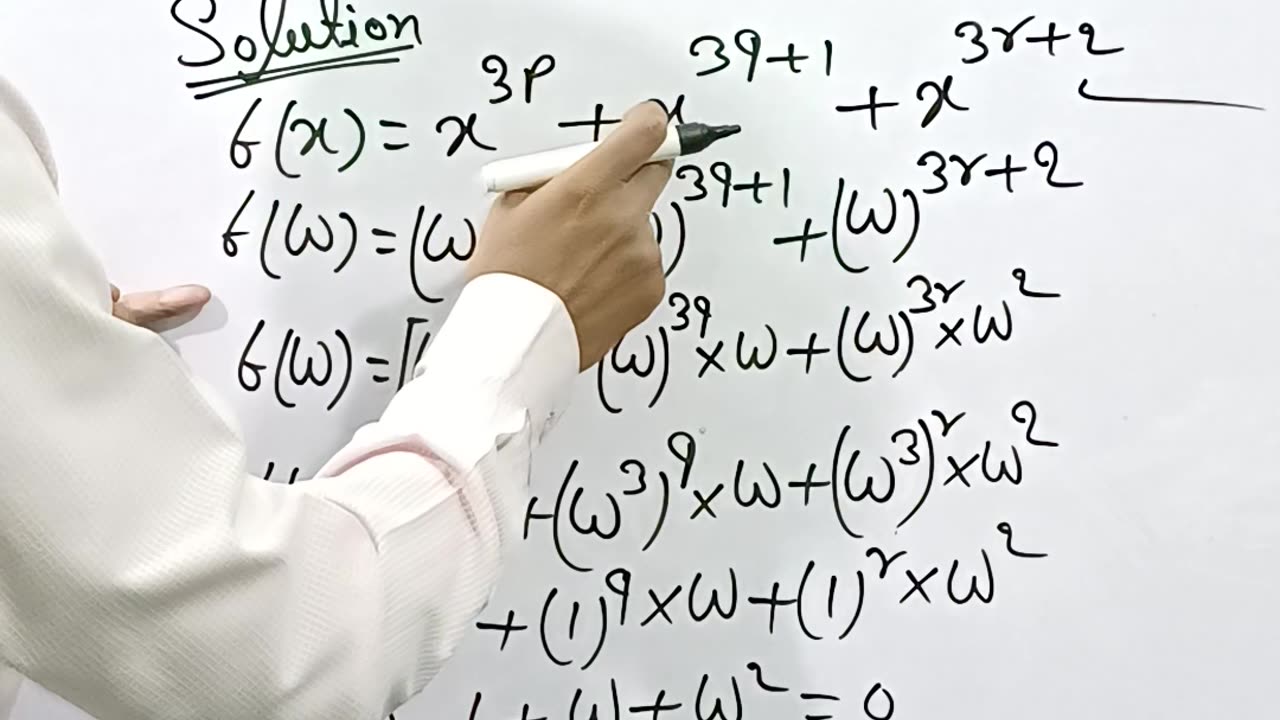 Solution
f(x) = x^3p + x^3q+1 + x^3r+2
f(ω) = (ω )^3q+1 + (ω)^3r+2
f(ω) = [ (ω)^3q × ω + (ω)^3r × ω^2
+ (ω^3)^q × ω + (ω^3)^r × ω^2
+ (1)^q × ω + (1)^r × ω^2
+ ω + ω^2 = 0